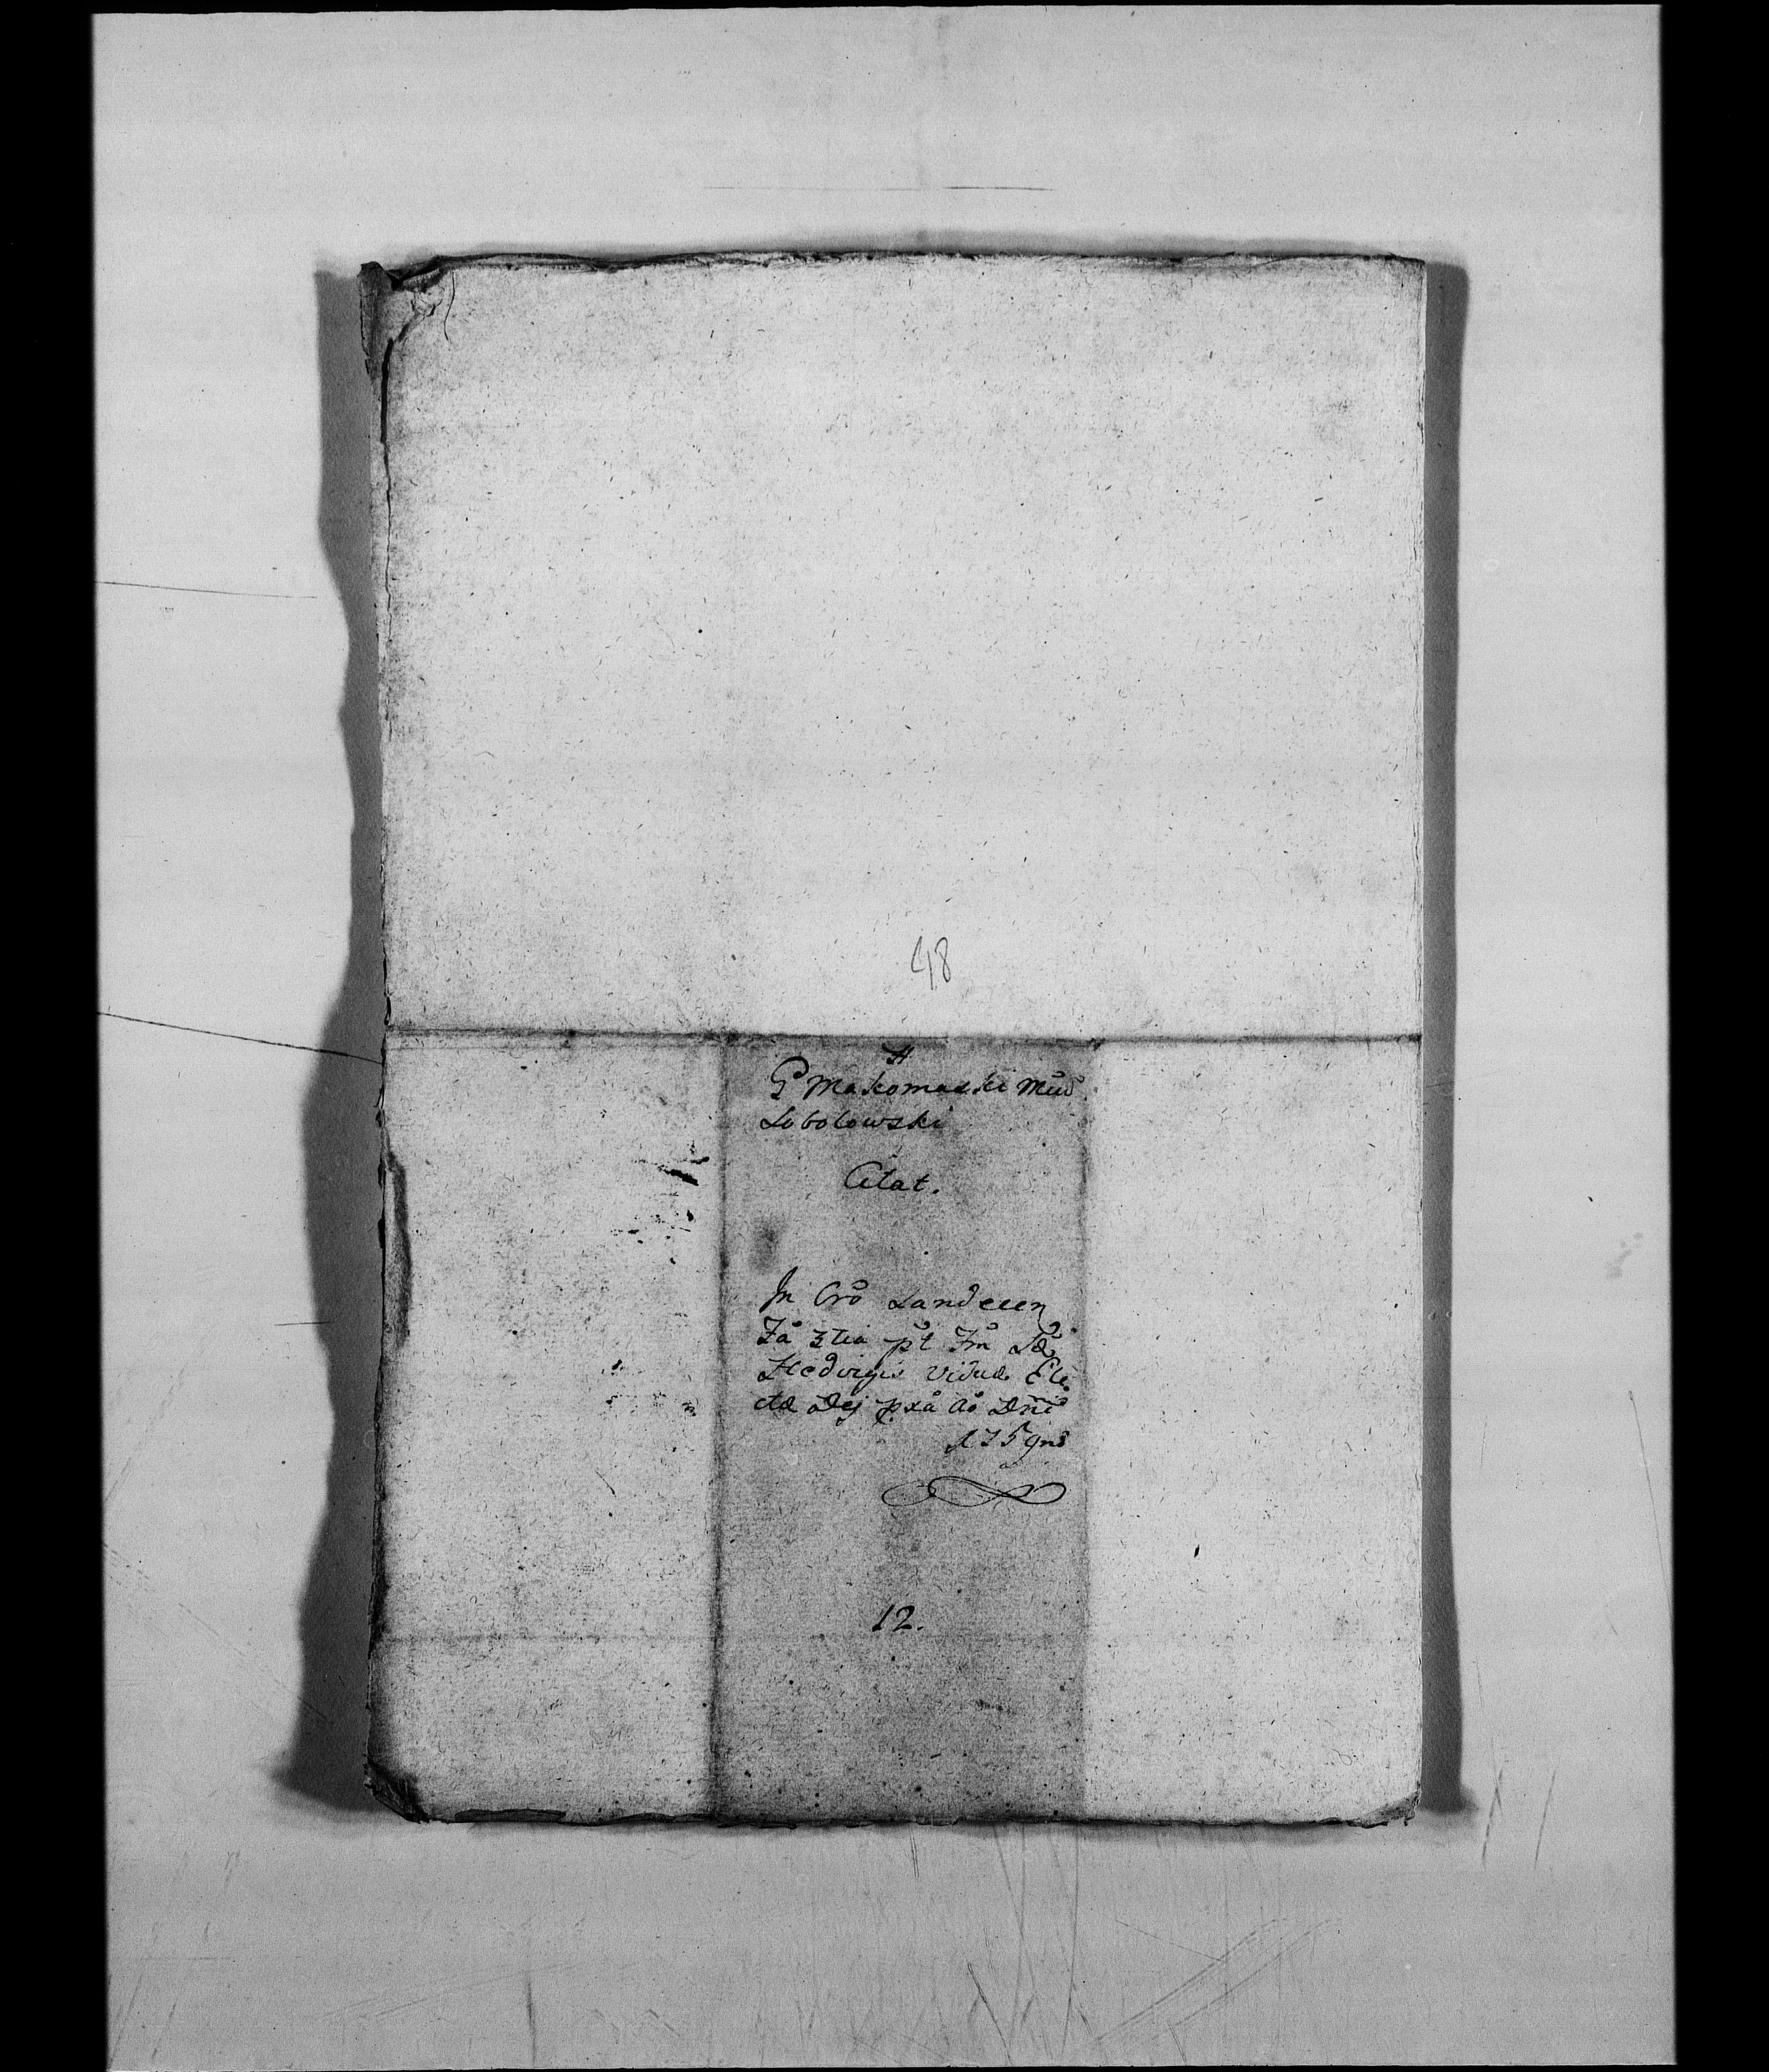 48
H
G Makomaski Mud
Sobolowski
Citat.
In Cro Landecen
Fa 3tia pt Fm Sæ
Hedvigis Viduæ Ele
ctæ Dej pxa Ao Dni
1759no
12.